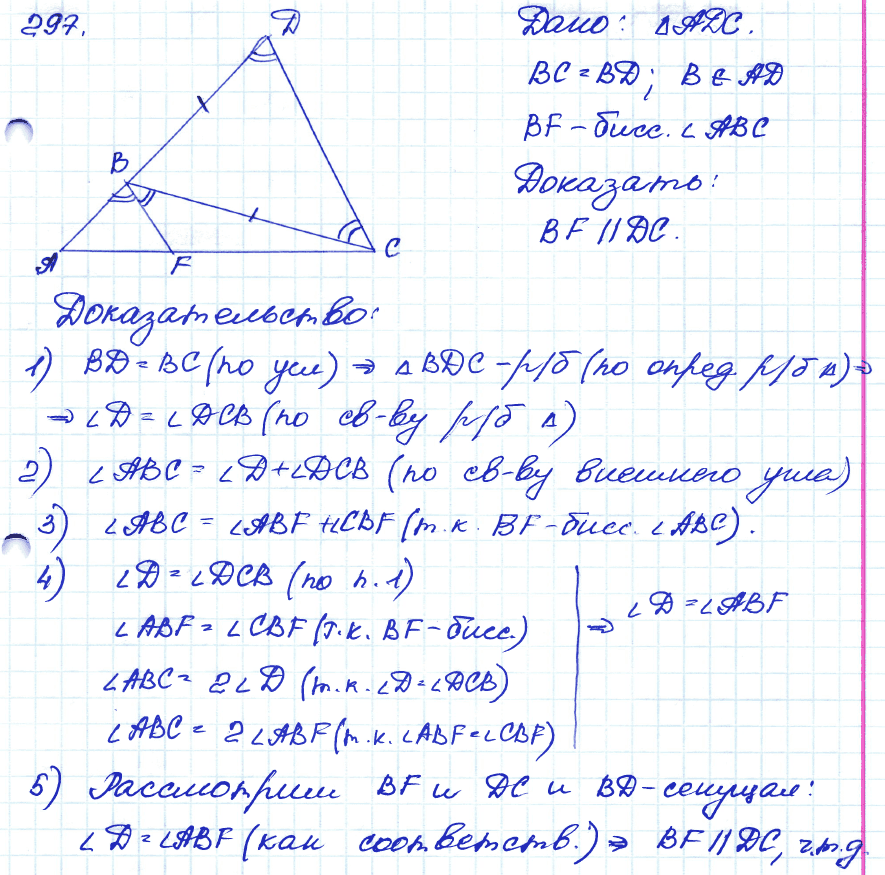 297.
Дано: △ADC.
BC = BD; B ∈ AD
BF – бисс. ∠ABC
Доказать:
BF || DC.
D
B
A
F
C
Доказательство:
1) BD = BC (по усл) ⇒ △BDC – р/б (по опред. р/б △) ⇒
⇒ ∠D = ∠DCB (по св-ву р/б △)
2) ∠ABC = ∠D+∠DCB (по св-ву внешнего угла)
3) ∠ABC = ∠ABF+∠CBF (т.к. BF – бисс. ∠ABC).
4) ∠D = ∠DCB (по п.1)
∠ABF = ∠CBF (т.к. BF – бисс.)
∠ABC = 2∠D (т.к. ∠D = ∠DCB)
∠ABC = 2∠ABF (т.к. ∠ABF = ∠CBF)
⇒ ∠D = ∠ABF
5) Рассмотрим BF и DC и BD – секущая:
∠D = ∠ABF (как соответств.) ⇒ BF || DC, ч.т.д.